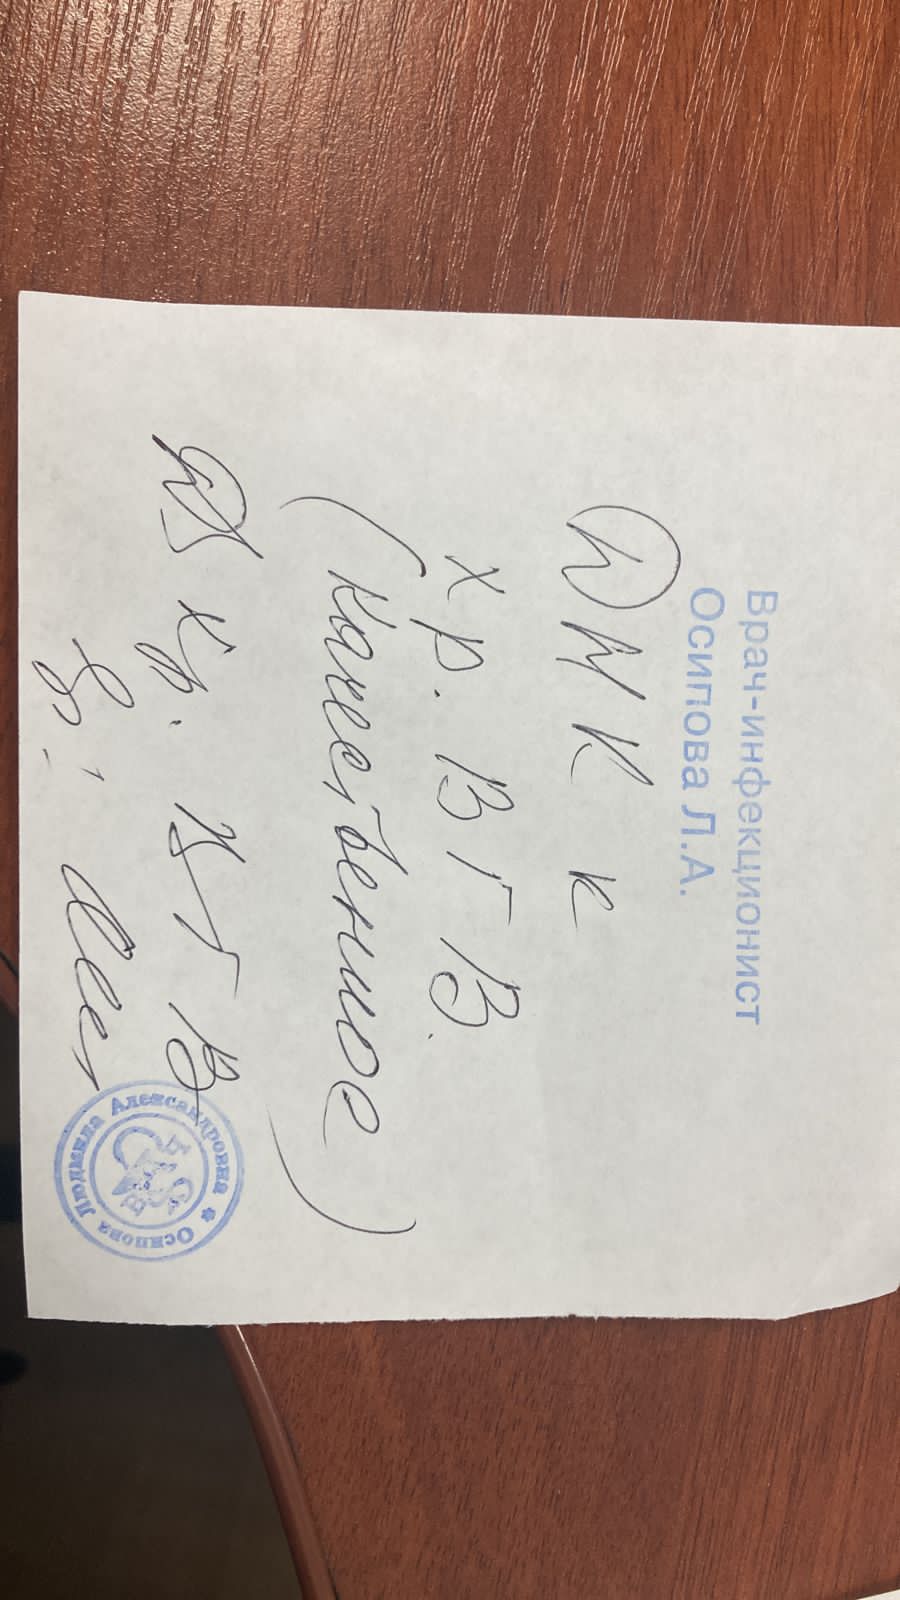 Врач-инфекционист
Осипова Л.А.
ДНК к
хр. ВГВ.
(качественное)
Ds хр. ВГВ
Вр.
Осипова Людмила Александровна
ВРАЧ